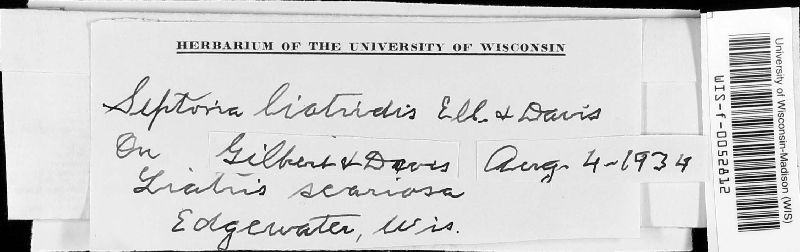 HERBARIUM OF THE UNIVERSITY OF WISCONSIN
Septoria liatridis Ell. & Davis
On Gilbert & Davis Aug. 4-1934
Liatris scariosa
Edgewater, Wis.
University of Wisconsin-Madison (WIS)
WIS-f-0052812